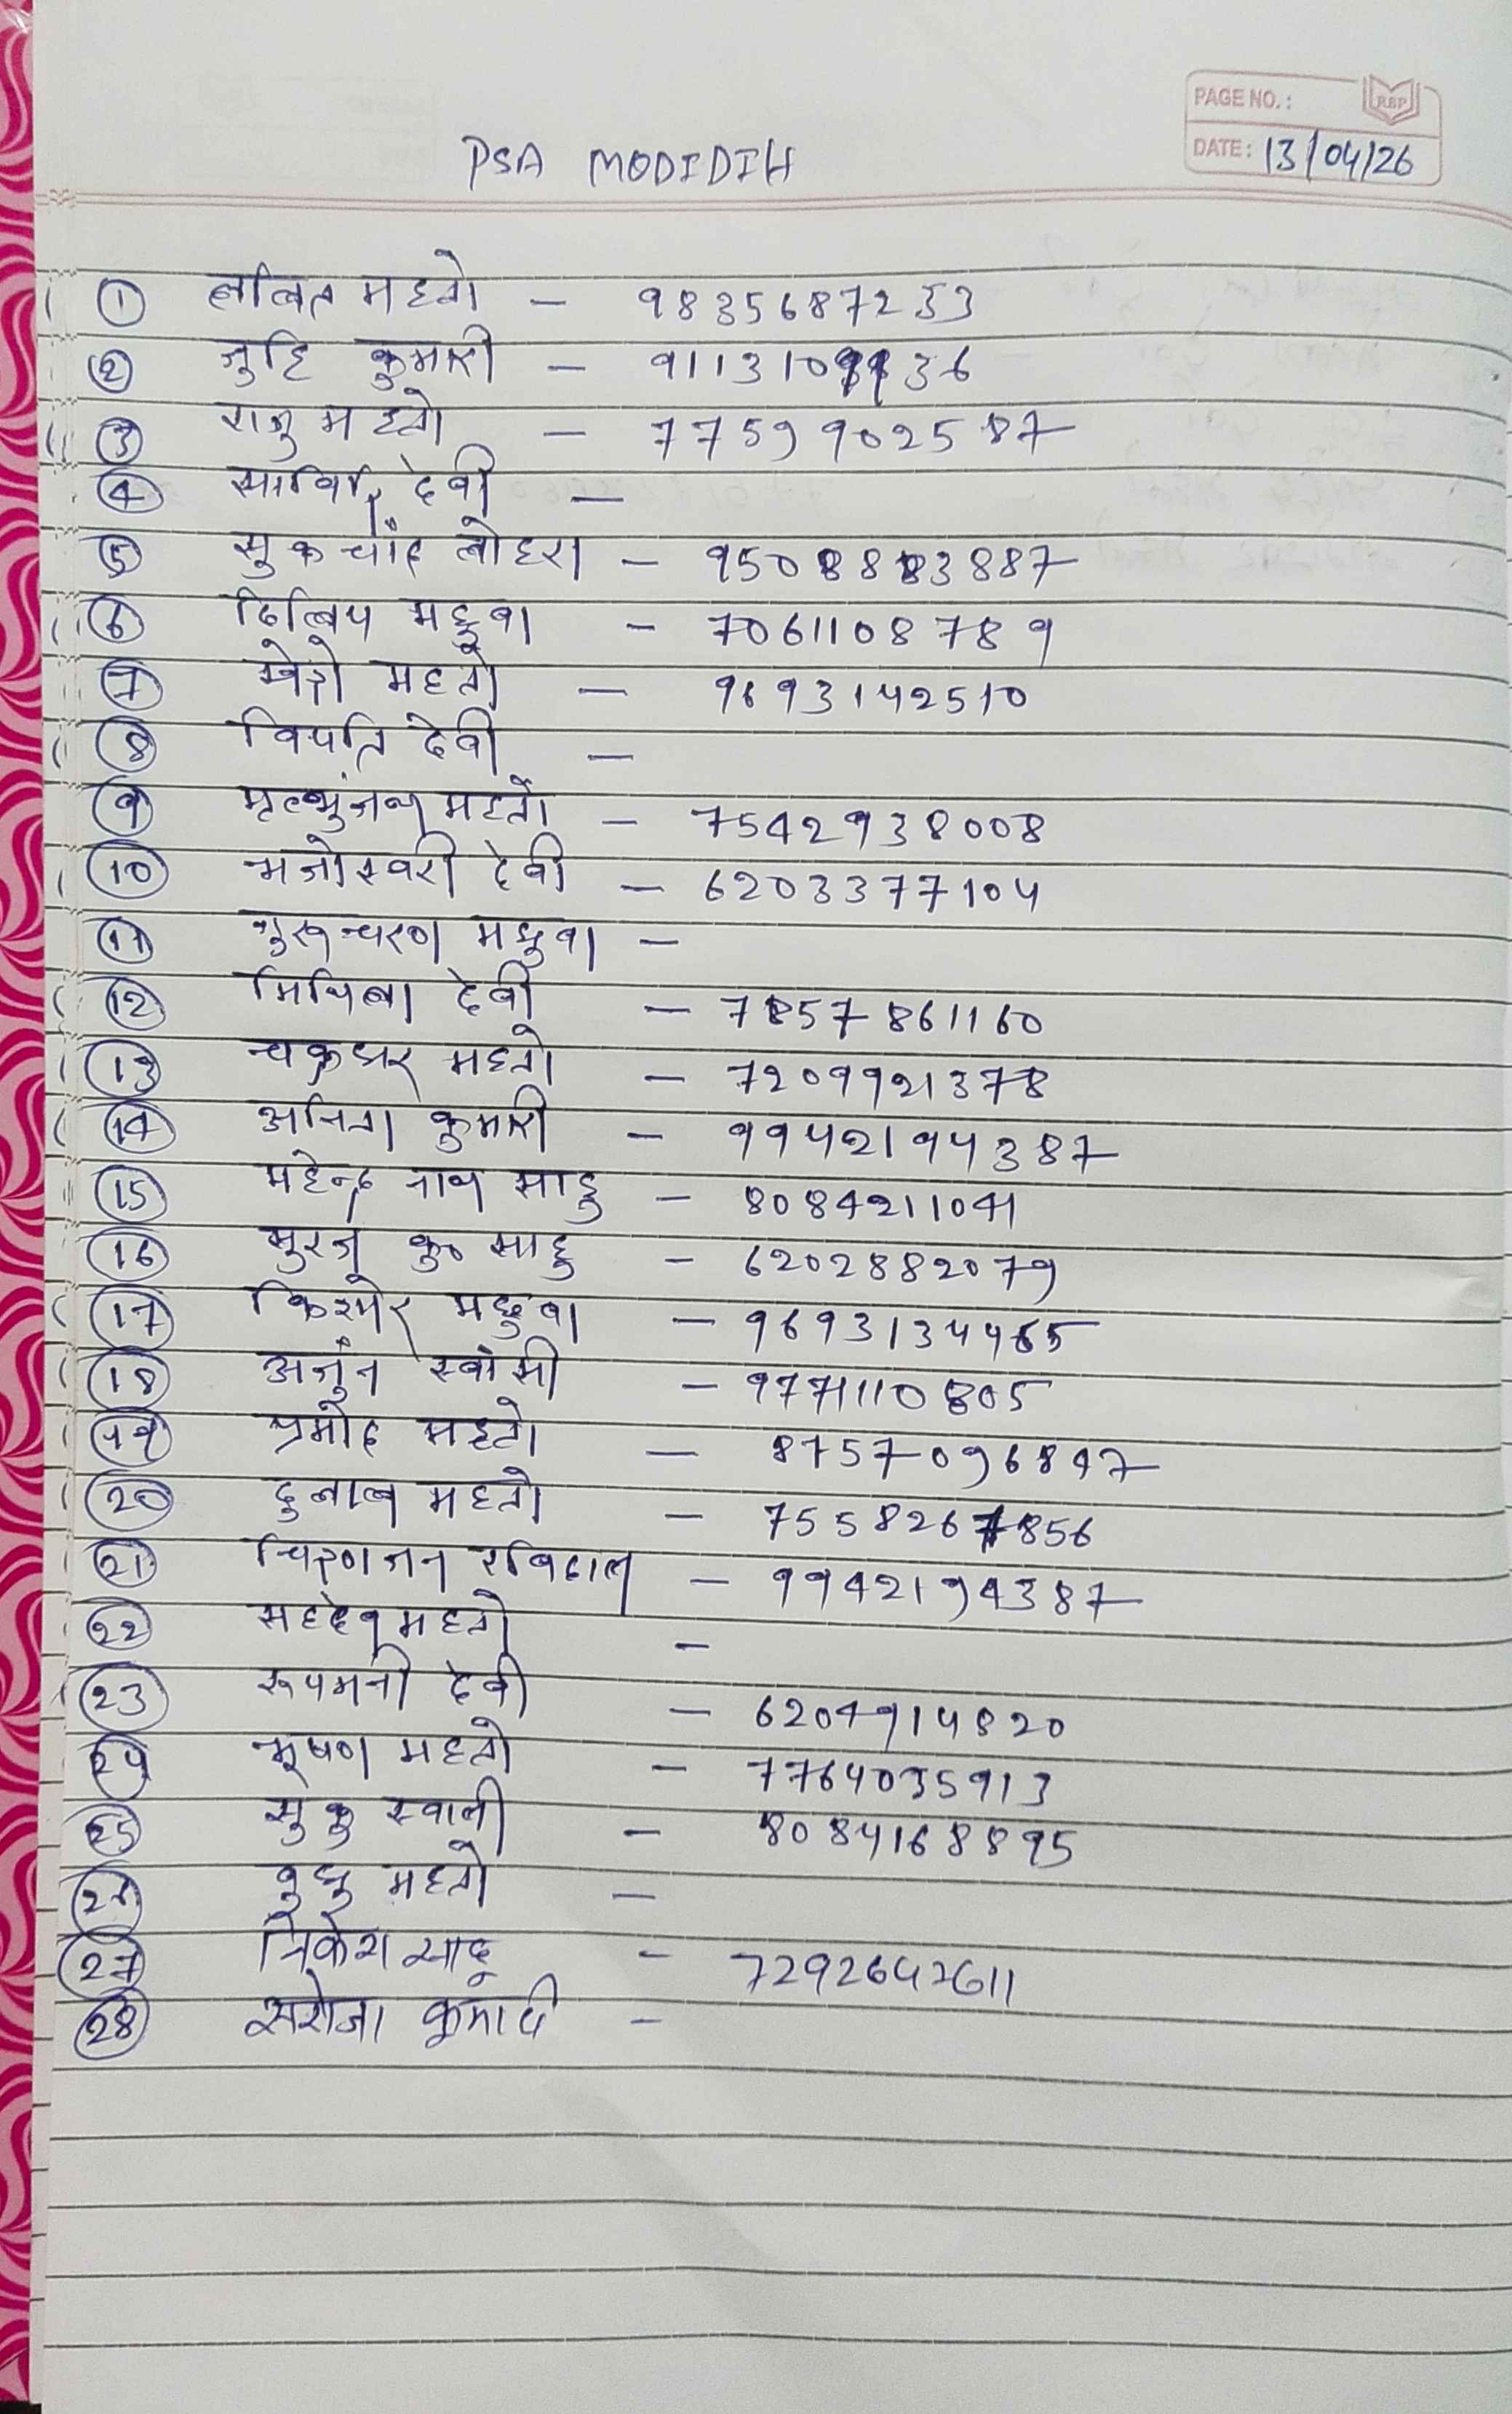 PAGE NO.:
RBP
DATE: 13/04/26
PSA MODIDIH
① ललित महतो - 9835687233
② जुहि कुमारी - 91131036
③ राजु महतो - 7759902587
④ सावित्रि देवी -
⑤ सुकचाँद लोहरा - 9508883887
⑥ दिलिप मछुवा - 7061108789
⑦ महतो - 9693142510
⑧ विपति देवी -
⑨ मृत्युंजय महतो - 7542938008
⑩ देवी - 6203377104
⑪ गुरूचरण मछुवा -
⑫ मिथिला देवी - 7857861160
⑬ चक्रधर महतो - 7209921378
⑭ अनिता कुमारी - 9942194387
⑮ महेन्द्र नाथ साहु - 8084211041
⑯ सुरज कु० साहु - 6202882079
⑰ किशोर मछुवा - 9693134465
⑱ अर्जुन स्वांसी - 9771110805
⑲ प्रमोद महतो - 8757096847
⑳ दुलाल महतो - 7558267856
㉑ चिरणजन रविदास - 9942194387
㉒ सहदेव महतो -
㉓ रूपमनी देवी - 6204914820
㉔ भूषण महतो - 7764035913
㉕ सुकु - 8084168895
㉖ बुधु महतो -
㉗ साहू - 7292642611
㉘ सरोजा कुमारी -